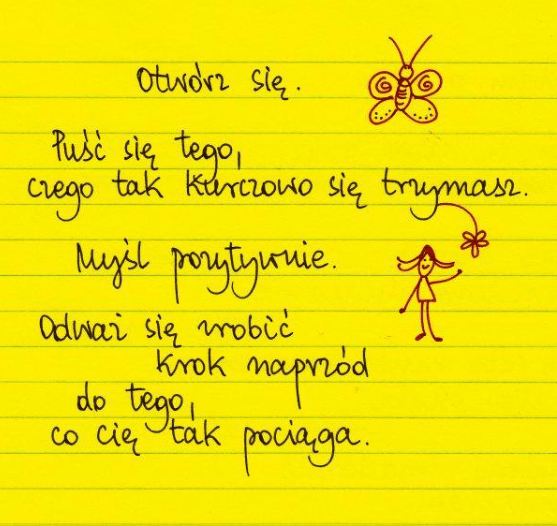 Otwórz się.
Puść się tego,
czego tak kurczowo się trzymasz.
Myśl pozytywnie.
Odważ się zrobić
krok naprzód
do tego,
co cię tak pociąga.